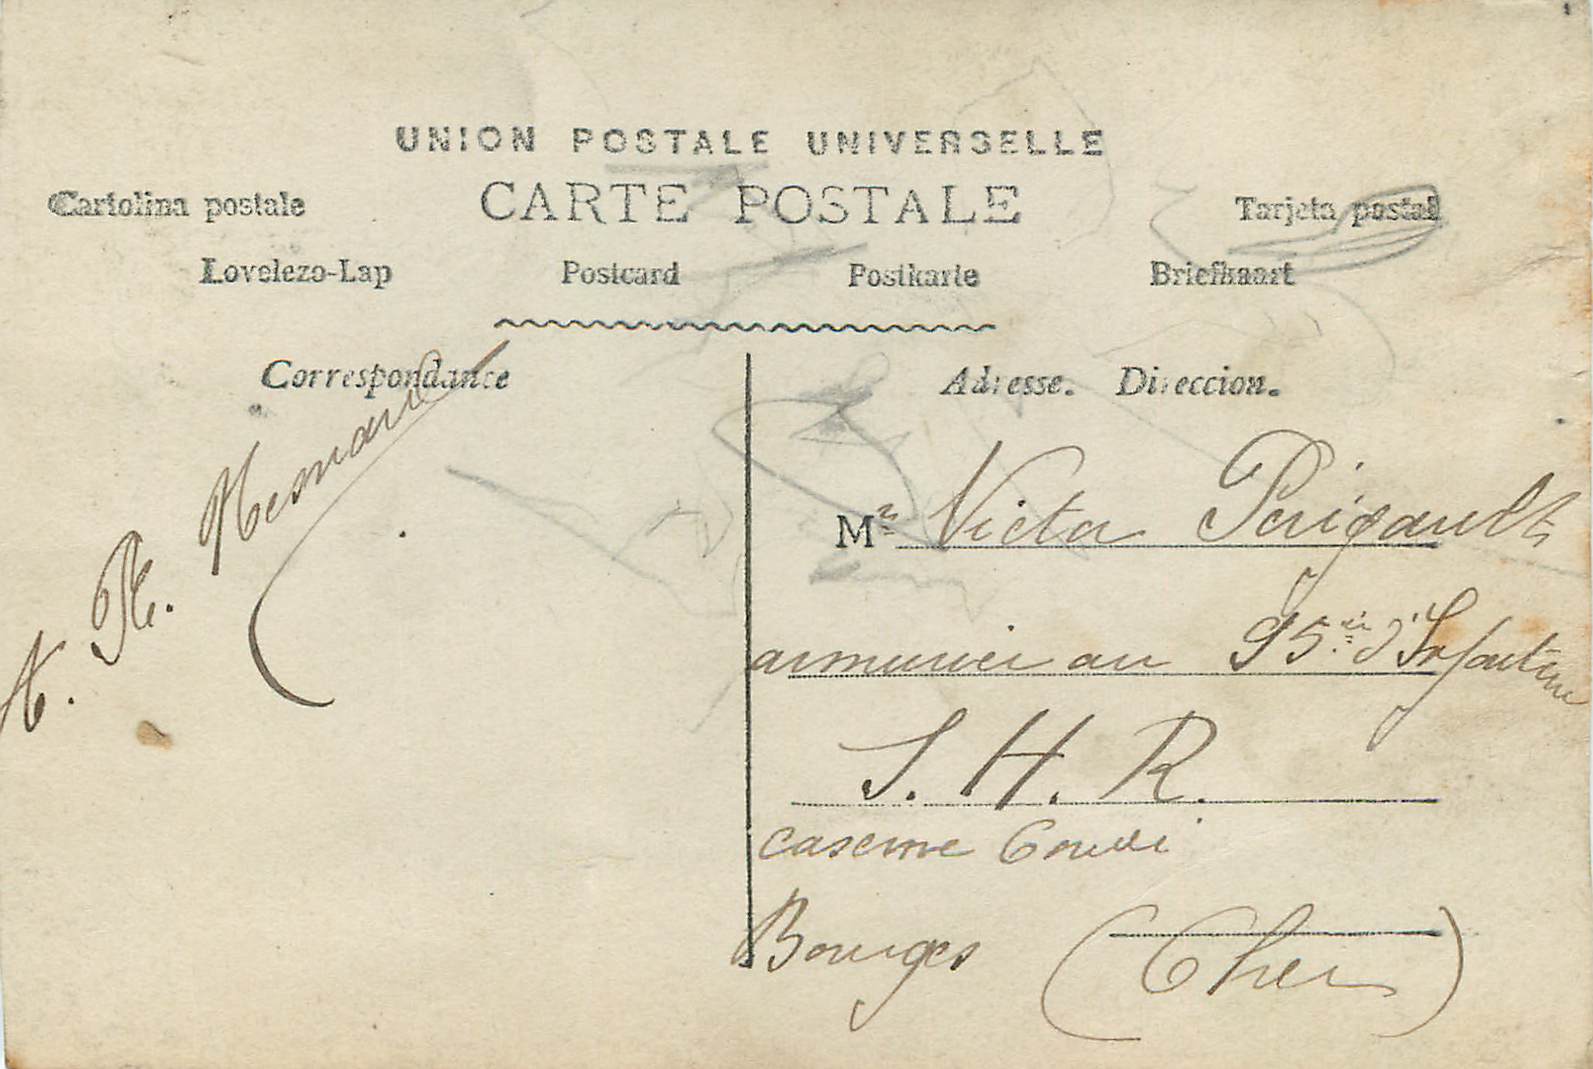 UNION POSTALE UNIVERSELLE
Cartolina postale CARTE POSTALE Tarjeta postal
Lovelezo-Lap Postcard Postkarte Briefkaart
Correspondance
Adresse. Direccion.
Mr Victor Périgault
armurier au 95e d'Infanterie
S. H. R.
caserne Condé
Bourges (Cher)